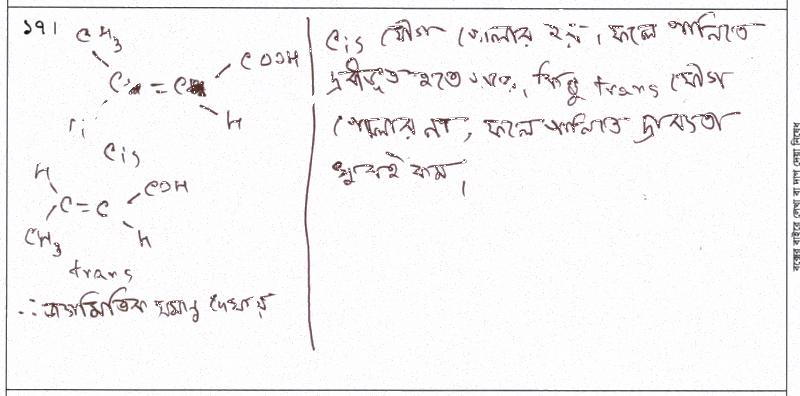 ১৭।
CH3
C = C
COOH
H
H
Cis
H
COH
C = C
CH3
H
trans
∴ জ্যামিতিক সমাণু দেখায়
Cis যৌগ পোলার হয়, ফলে পানিতে
দ্রবীভূত হতে পারে, কিন্তু trans যৌগ
পোলার না, ফলে পানিতে দ্রাব্যতা
খুবই কম।
বক্সের বাইরে লেখা বা দাগ দেয়া নিষেধ